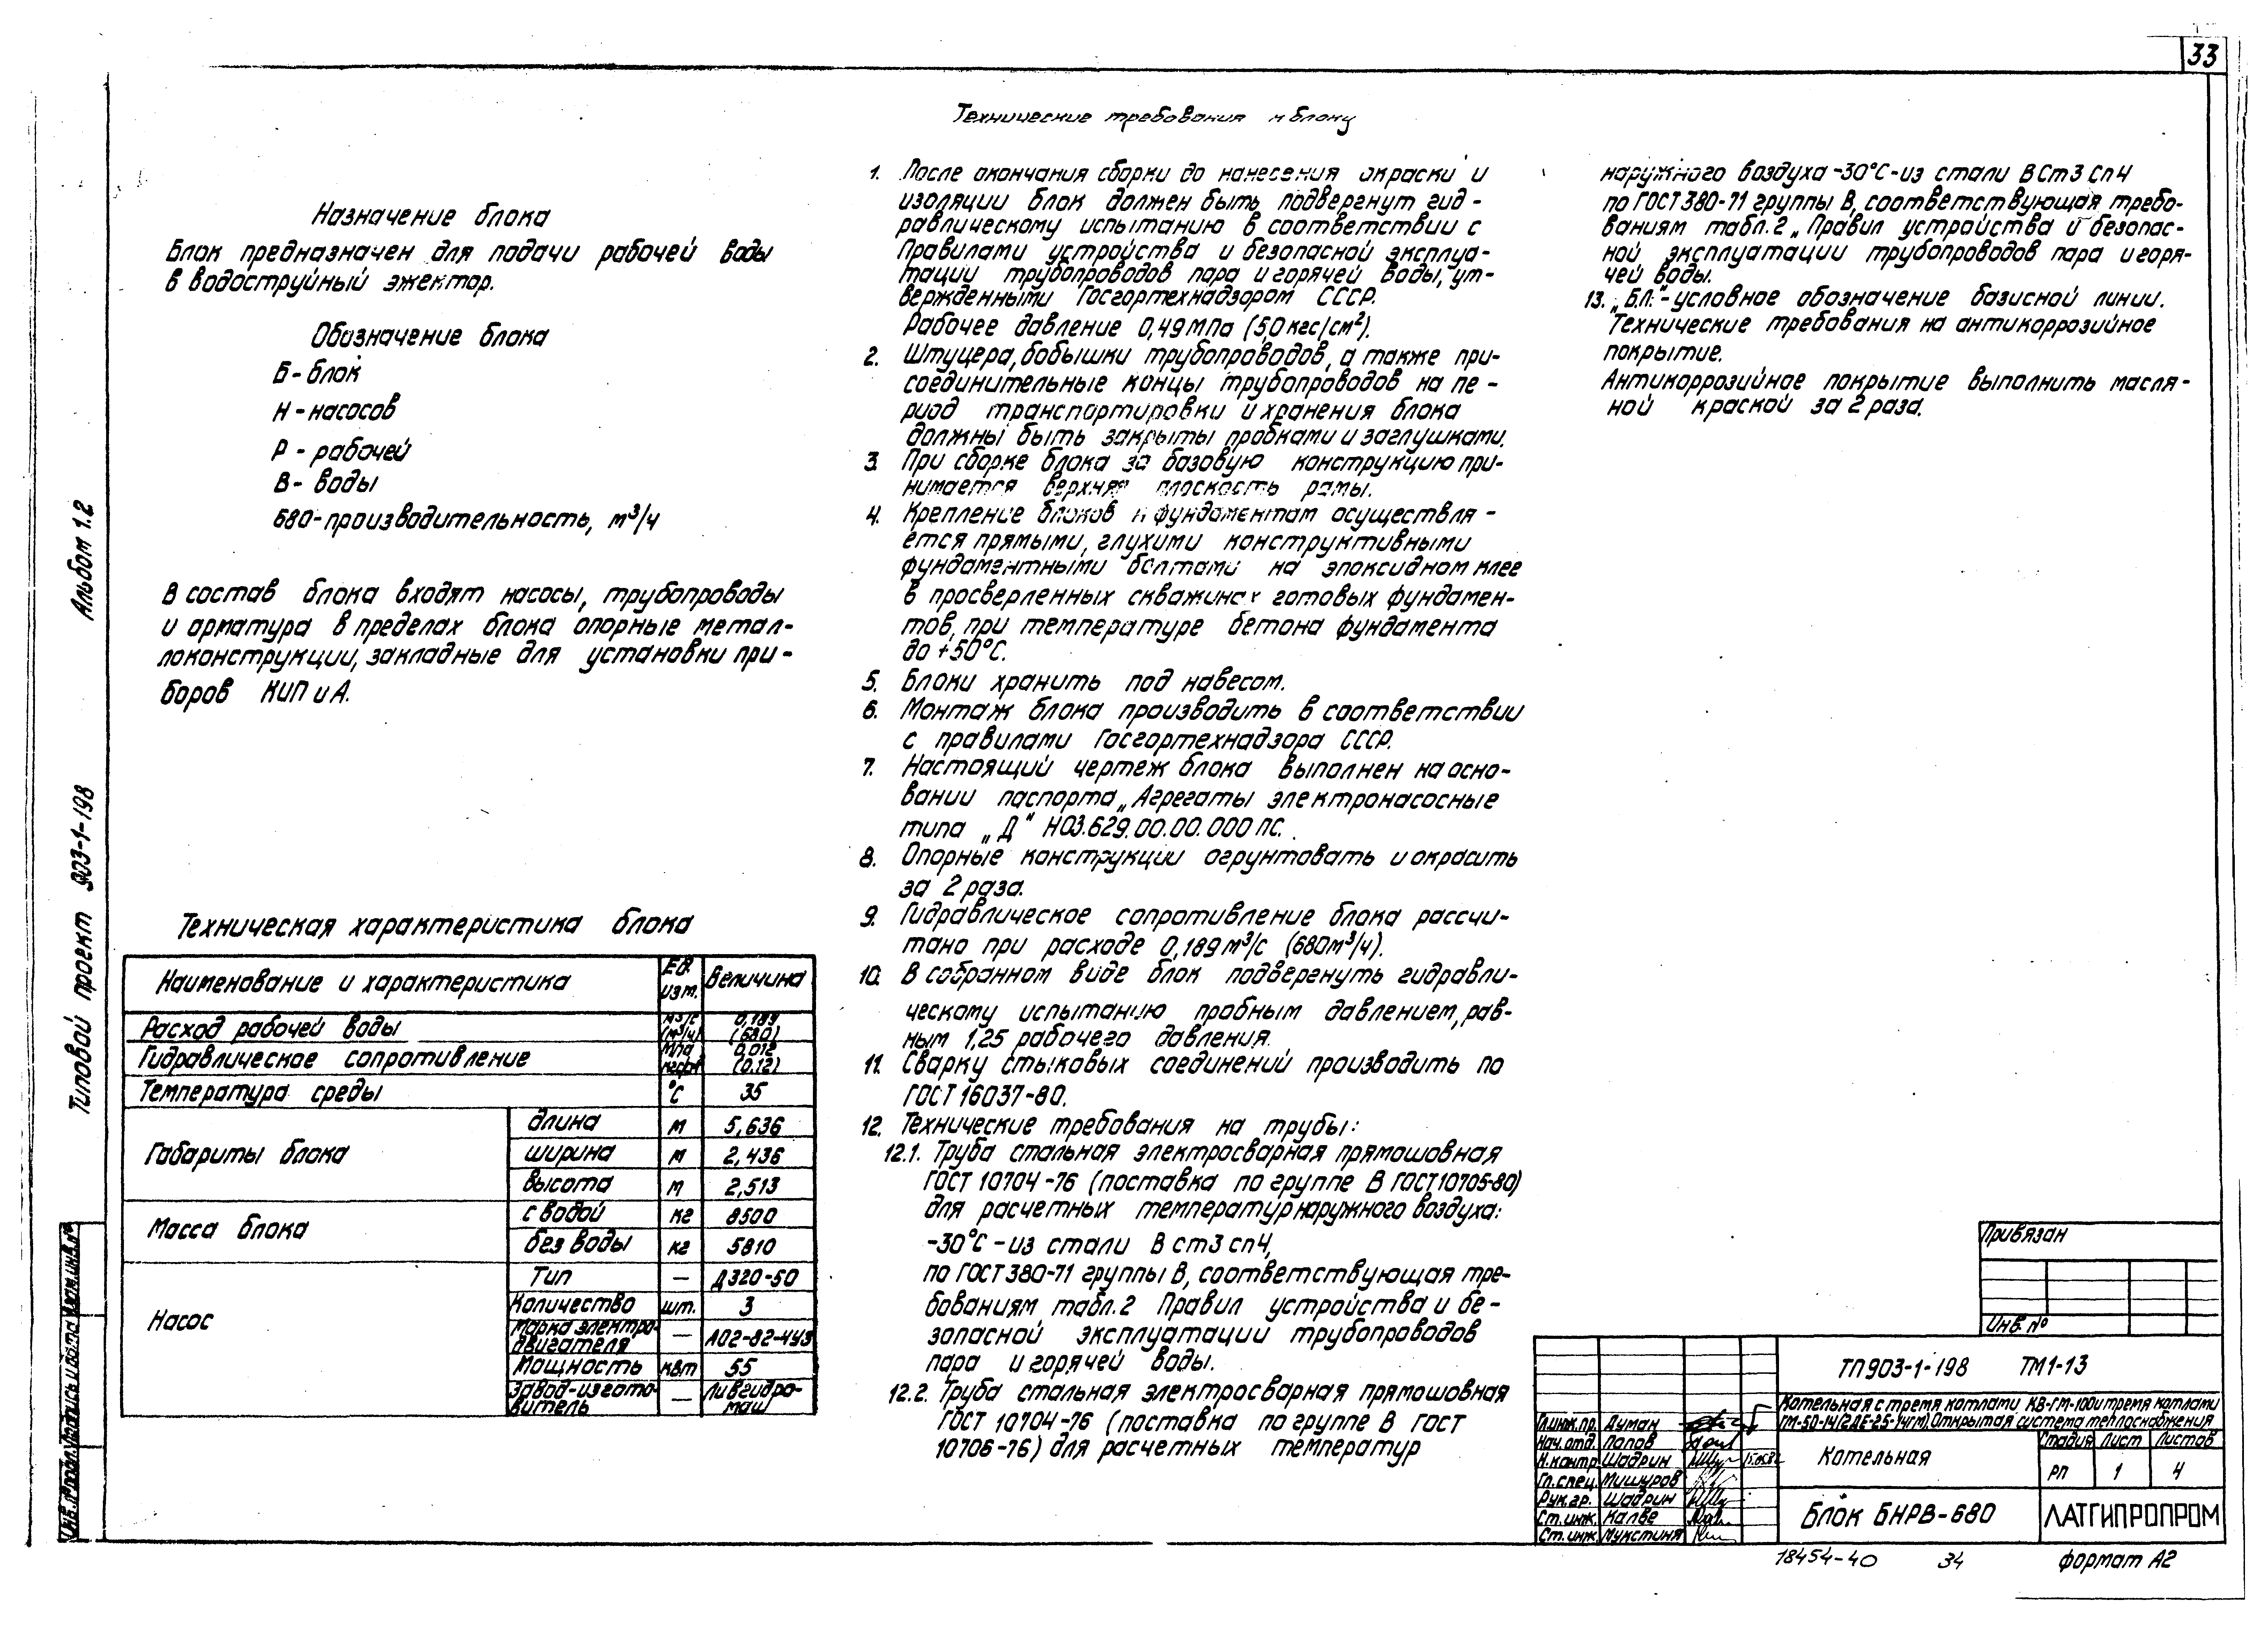 33
Назначение блока
Блок предназначен для подачи рабочей воды
в водоструйный эжектор.
Обозначение блока
Б - блок
Н - насосов
Р - рабочей
В - воды
680 - производительность, м³/ч
В состав блока входят насосы, трубопроводы
и арматура в пределах блока опорные метал-
локонструкции, закладные для установки при-
боров КИП и А.
Техническая характеристика блока
Наименование и характеристика Ед. изм. Величина
Расход рабочей воды м³/с (м³/ч) 0,189 (680)
Гидравлическое сопротивление МПа 0,012 (0,12)
Температура среды °С 35
Габариты блока длина м 5,636
ширина м 2,436
высота м 2,513
Масса блока с водой кг 8500
без воды кг 5810
Насос Тип — Д320-50
Количество шт. 3
Марка электро-
двигателя — АО2-82-4У3
Мощность квт 55
Завод-изгото-
витель — Ливгидро-
маш
Технические требования к блоку
1. После окончания сборки до нанесения окраски и
изоляции блок должен быть подвергнут гид-
равлическому испытанию в соответствии с
Правилами устройства и безопасной эксплуа-
тации трубопроводов пара и горячей воды, ут-
вержденными Госгортехнадзором СССР.
Рабочее давление 0,49 МПа (5,0 кгс/см²).
2. Штуцера, бобышки трубопроводов, а также при-
соединительные концы трубопроводов на пе-
риод транспортировки и хранения блока
должны быть закрыты пробками и заглушками.
3. При сборке блока за базовую конструкцию при-
нимается верхняя плоскость рамы.
4. Крепление блоков к фундаментам осуществля-
ется прямыми, глухими конструктивными
фундаментными болтами на эпоксидном клее
в просверленных скважинах готовых фундамен-
тов, при температуре бетона фундамента
до +50°С.
5. Блоки хранить под навесом.
6. Монтаж блока производить в соответствии
с правилами Госгортехнадзора СССР.
7. Настоящий чертеж блока выполнен на осно-
вании паспорта „Агрегаты электронасосные
типа „Д" Н03.629.00.00.000 ПС.
8. Опорные конструкции огрунтовать и окрасить
за 2 раза.
9. Гидравлическое сопротивление блока рассчи-
тано при расходе 0,189 м³/с (680 м³/ч).
10. В собранном виде блок подвергнуть гидравли-
ческому испытанию пробным давлением, рав-
ным 1,25 рабочего давления.
11. Сварку стыковых соединений производить по
ГОСТ 16037-80.
12. Технические требования на трубы:
12.1. Труба стальная электросварная прямошовная
ГОСТ 10704-76 (поставка по группе В ГОСТ 10705-80)
для расчетных температур наружного воздуха:
-30°С - из стали В ст3 сп4,
по ГОСТ 380-71 группы В, соответствующая тре-
бованиям табл. 2 Правил устройства и бе-
зопасной эксплуатации трубопроводов
пара и горячей воды.
12.2. Труба стальная электросварная прямошовная
ГОСТ 10704-76 (поставка по группе В ГОСТ
10706-76) для расчетных температур
наружного воздуха -30°С - из стали ВСт3 Сп4
по ГОСТ 380-71 группы В, соответствующая требо-
ваниям табл. 2 „Правил устройства и безопас-
ной эксплуатации трубопроводов пара и горя-
чей воды.
13. „Б.Л." - условное обозначение базисной линии.
Технические требования на антикоррозийное
покрытие.
Антикоррозийное покрытие выполнить масля-
ной краской за 2 раза.
Типовой проект 903-1-198 Альбом 1.2
Инв. № подл. Подпись и дата Взам. инв. №
Привязан
Инв. №
ТП 903-1-198 ТМ1-13
Котельная с тремя котлами КВ-ГМ-100 и тремя котлами
ГМ-50-14 (2ДЕ-25-14ГМ). Открытая система теплоснабжения
Гл. инж. пр. Думан
Нач. отд. Попов
Н. контр. Шадрин
Гл. спец. Мишуров
Рук. гр. Шадрин
Ст. инж. Калве
Ст. инж. Мукстиня
Котельная
Стадия Лист Листов
РП 1 4
Блок БНРВ-680
ЛАТГИПРОПРОМ
18454-40 34 формат А2